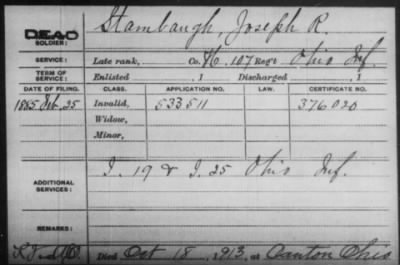 Stambaugh, Joseph R.
DEAD
SOLDIER:
SERVICE: Late rank, Co. K, 107 Reg't Ohio Inf.
TERM OF SERVICE: Enlisted , 1 Discharged , 1
DATE OF FILING. CLASS. APPLICATION NO. LAW. CERTIFICATE NO.
1885 Feb. 25 Invalid, 533511 376020
Widow,
Minor,
ADDITIONAL SERVICES: I. 19 & I. 25 Ohio Inf.
REMARKS:
Died Oct 18, 1913, at Canton Ohio